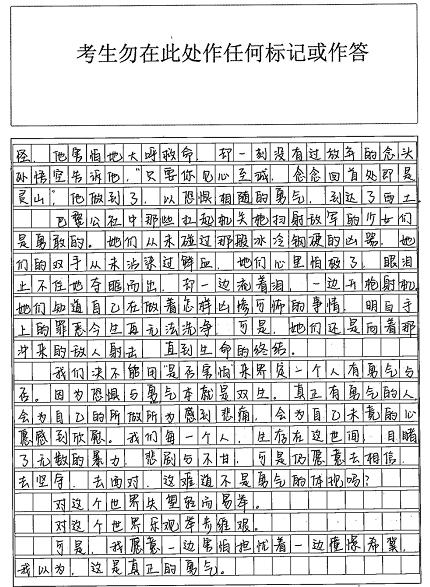 考生勿在此处作任何标记或作答
怪，他害怕地大呼救命，却一刻没有过放弃的念头
孙悟空告诉他，“只要你见心至诚，念念回首处即是
灵山；他做到了，以恐惧相随的勇气，到达了西土
巴黎公社中那些扛起机关枪扫射敌军的少女们
是勇敢的。她们从未碰过那般冰冷钢硬的凶器，她
们的双手从未沾染过鲜血，她们心里怕极了，眼泪
止不住地夺眶而出，却一边流着泪，一边开枪射机
她们知道自己在做着怎样凶惨可怖的事情，明白手
上的罪恶今生再无法洗净，可是，她们还是向着那
冲来的敌人射击，直到生命的终结。
我们决不能用“是否害怕”来界定一个人有勇气与
否。因为恐惧与勇气本就是双生。真正有勇气的人
会为自己的所做所为感到悲痛，会为自己未竟的心
愿感到欣慰。我们每一个人，生存在这世间，目睹
了无数的暴力，悲剧与不甘，可是仍愿意去相信，
去坚守，去面对，这难道不是勇气的体现吗？
对这个世界失望轻而易举。
对这个世界乐观举步维艰。
可是，我愿意一边害怕担忧着一边憧憬希冀，
我以为，这是真正的勇气。